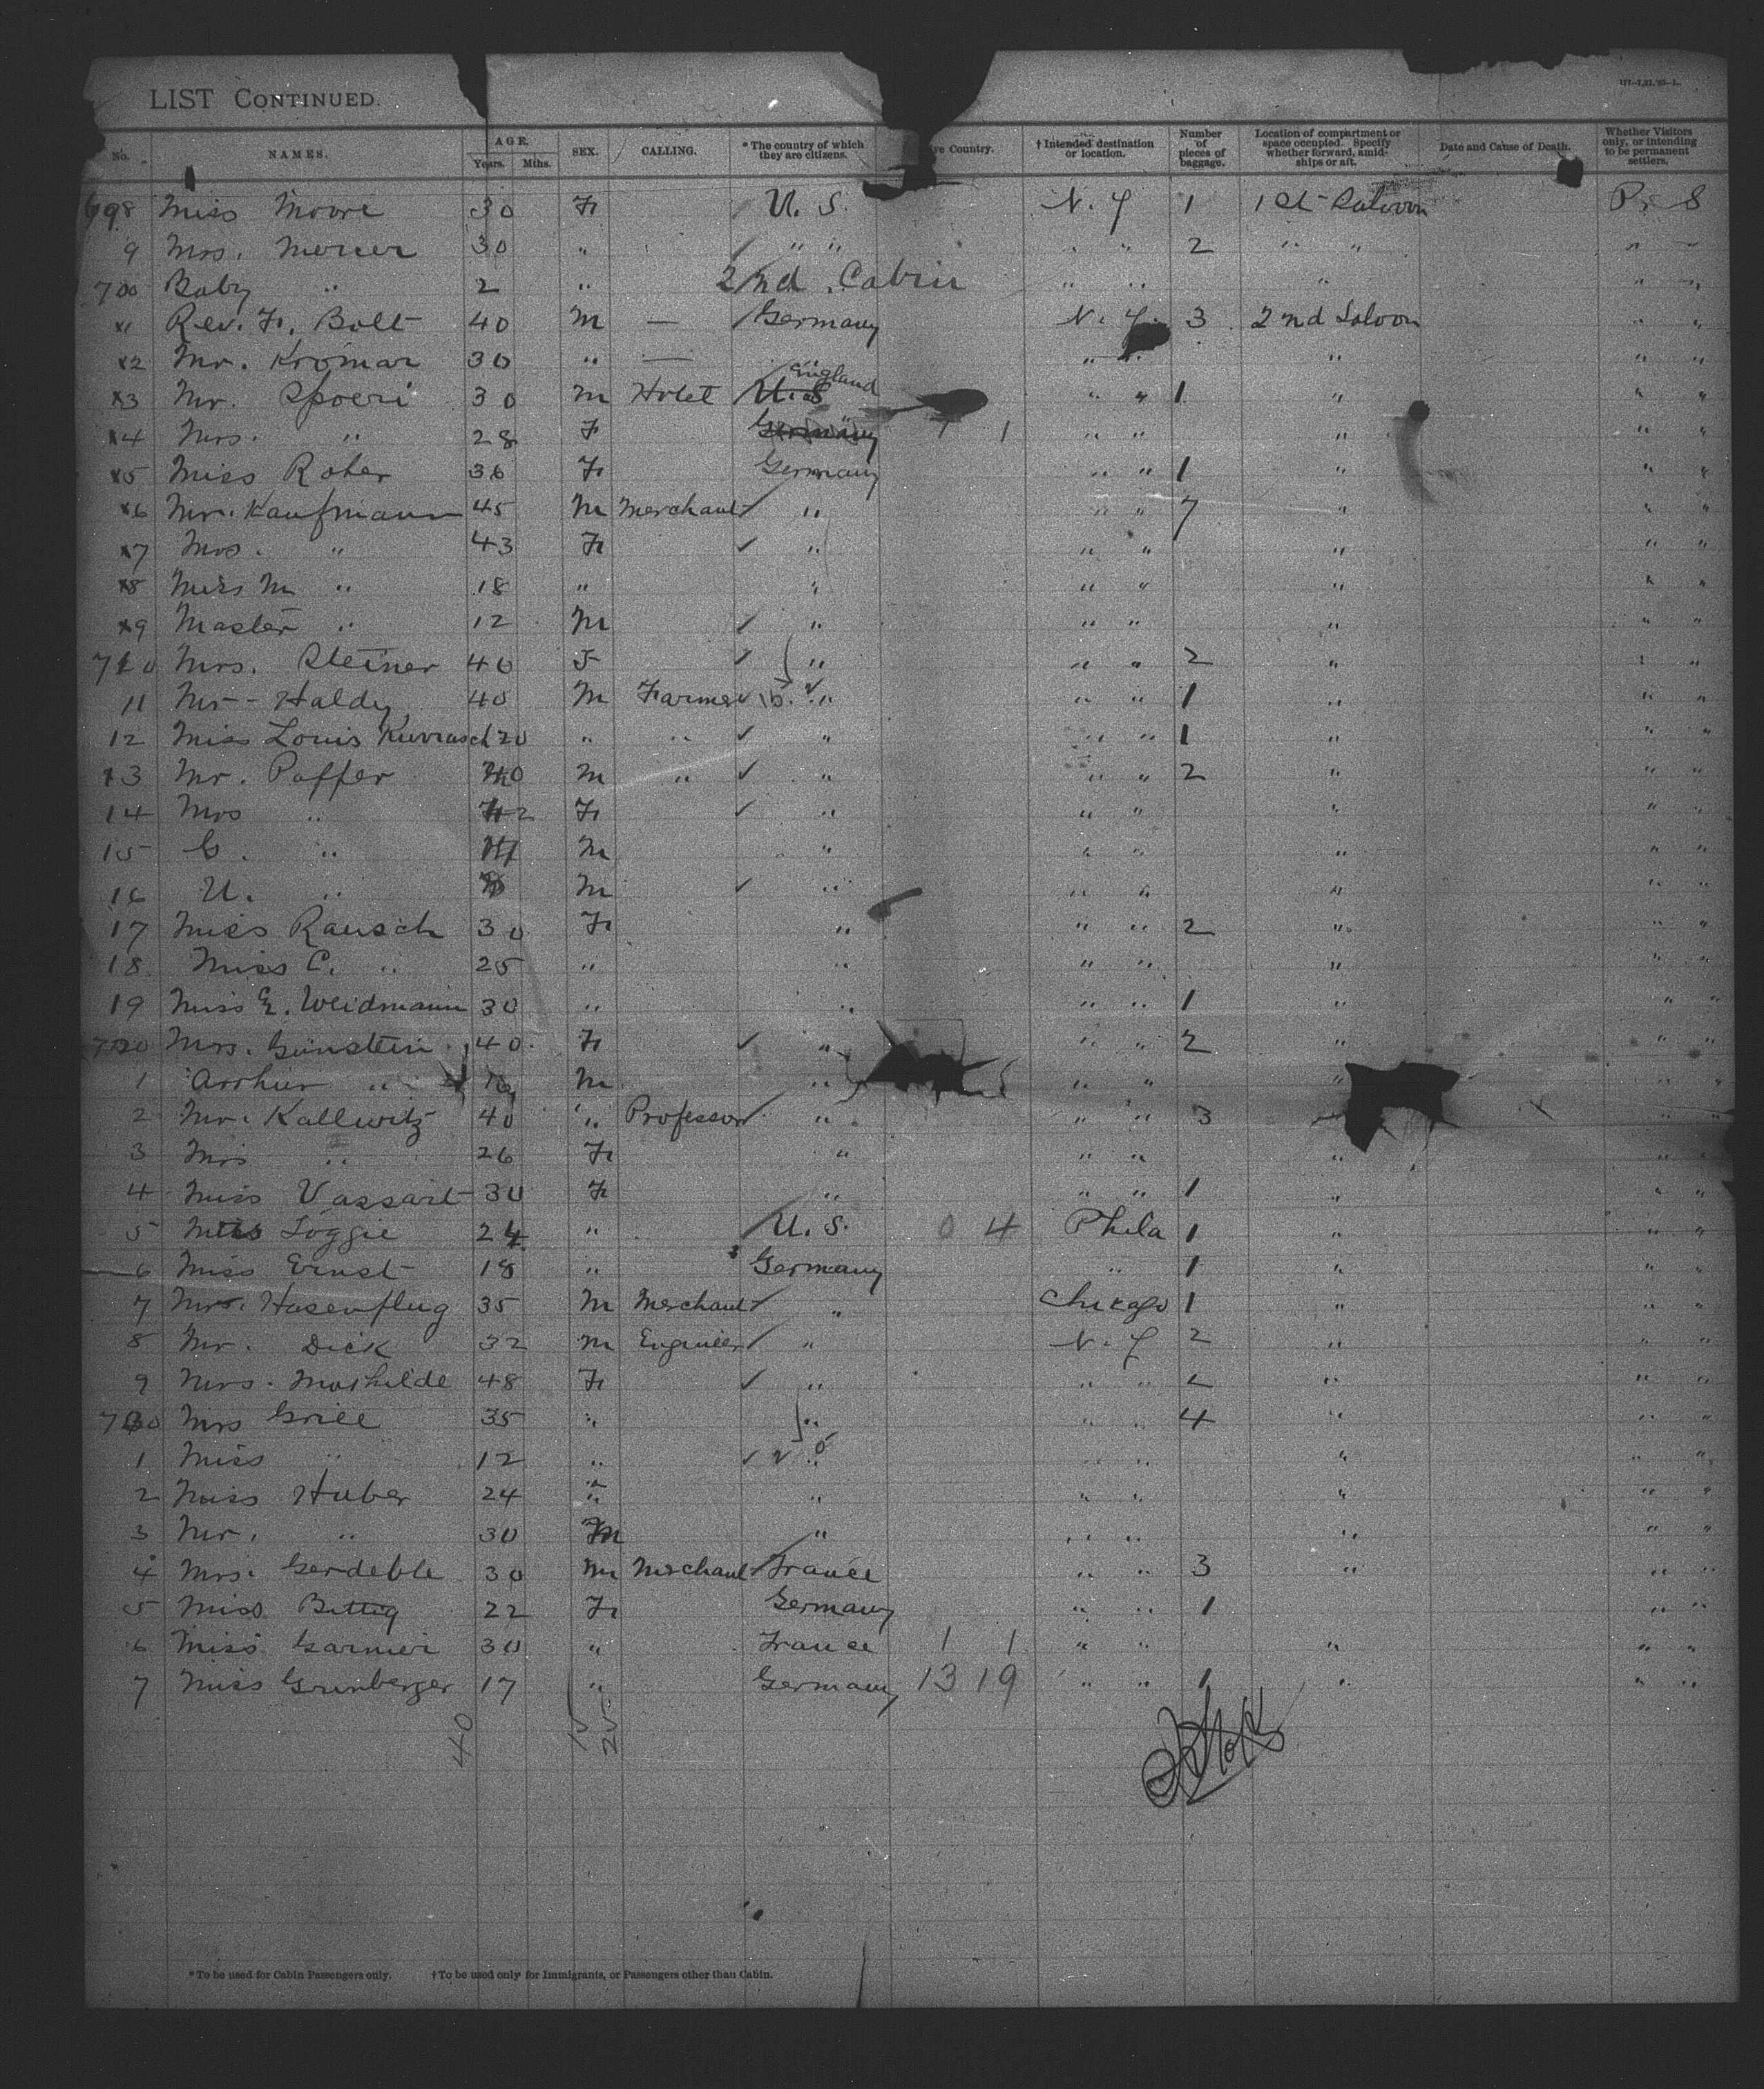 LIST CONTINUED.
No. NAMES. AGE. Years. Mths. SEX. CALLING. * The country of which they are citizens. Country. † Intended destination or location. Number of pieces of baggage. Location of compartment or space occupied. Specify whether forward, amid-ships or aft. Date and Cause of Death. Whether Visitors only, or intending to be permanent settlers.
698 Miss Moore 30 F U. S. N. Y 1 1st Saloon
9 Mrs. Mercer 30 " " " " " 2 " " " "
700 Baby " 2 " 2nd Cabin " " " " "
1 Rev. F. Bolt 40 M — Germany N. Y. 3 2nd Saloon " "
2 Mr. Kromar 30 " — " " " " " "
3 Mr. Spoeri 30 M Hotel U. S England " " 1 " " "
4 Mrs. " 28 F Germany " 1 1 " " " " "
5 Miss Roher 36 F Germany " " 1 " " "
6 Mr. Kaufmann 45 M Merchant " " " 7 " " "
7 Mrs. " 43 F " " " " " "
8 Miss M " 18 " " " " " " "
9 Master " 12 M " " " " " "
710 Mrs. Steiner 40 F " " " 2 " " "
11 Mr - Haldy 40 M Farmer " " " 1 " " "
12 Miss Louis Kurrasch 20 " " " " " 1 " " "
13 Mr. Poffer M " " " " 2 " " "
14 Mrs " F " " " " " "
15 G. " M " " " " " "
16 U. " M " " " " " "
17 Miss Rausch 30 F " " " 2 " " "
18 Miss C. " 25 " " " " " " "
19 Miss E. Weidmann 30 " " " " 1 " " "
720 Mrs. Günstein 40 F " " " 2 " " "
1 Arthur " M " " " " " "
2 Mr. Kallwitz 40 " Professor " " " 3 " "
3 Mrs " 26 F " " " " " "
4 Miss Vassart 30 F " " " 1 " " "
5 Miss Loggie 24 " U. S. 0 4 Phila 1 " " "
6 Miss Ernst 18 " Germany " 1 " " "
7 Mr. Hasenflug 35 M Merchant " Chicago 1 " " "
8 Mr. Dick 32 M Engineer " N. Y 2 " " "
9 Mrs. Mathilde 48 F " " " 2 " " "
730 Mrs Grill 35 " " " " 4 " " "
1 Miss " 12 " " " " " " "
2 Miss Huber 24 " " " " " " "
3 Mr. " 30 M " " " " " "
4 Mrs. Gerdeble 30 M Merchant France " " 3 " " "
5 Miss Bettig 22 F Germany " " 1 " "
6 Miss Garnier 30 " France 1 1 " " " " "
7 Miss Grunberger 17 " Germany 13 19 " " 1 " " "
40
* To be used for Cabin Passengers only. † To be used only for Immigrants, or Passengers other than Cabin.